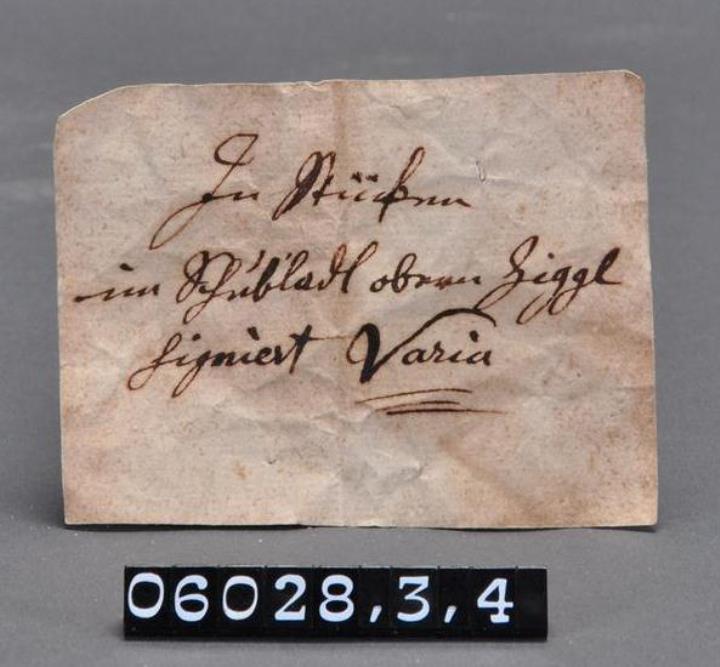 In Stücken
im Schubladl obern Ziggl
signiert Varia
06028,3,4